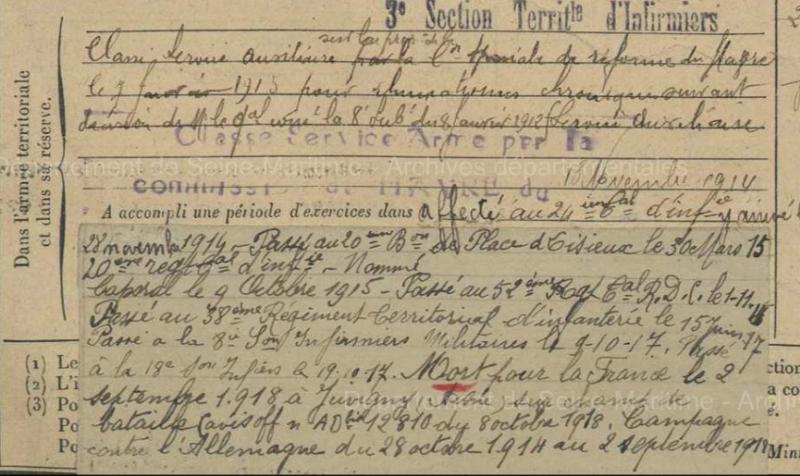 3e Section Territle d'Infirmiers
Dans l'armée territoriale
et dans sa réserve.
Classé Service auxiliaire par la Con Spéciale de réforme du Havre
le 7 1913 pour rhumatismes chronique suivant
décision de Mr le Gal la 8e du 8 janvier 1913 Service Auxiliaire
Classe Service Armé par la
commission du HAVRE du
18 Novembre 1914
A accompli une période d'exercices dans affecté au 24 d'infie y arrivé
28 novembre 1914 - Passé au 20ème Bon de Place de Lisieux le 30 Mars 15
20ème régt d'infie - Nommé
Caporal le 9 Octobre 1915 - Passé au 52ème le 1-11-
Passé au 38ème Régiment Territorial d'infanterie le 15 juin 17
Passé à la 8e Son Infirmiers Militaires le 9-10-17. Passé
à la 18e Son Infiers le 19.10.17. Mort pour la France le 2
septembre 1918 à Juvigny (Aisne) sur champ de
bataille (avis off n° AD 12810 du 8 octobre 1918. Campagne
contre l'Allemagne du 28 octobre 1914 au 2 septembre 1918
(1) Le
(2) L'i
(3) Po
Po
Po